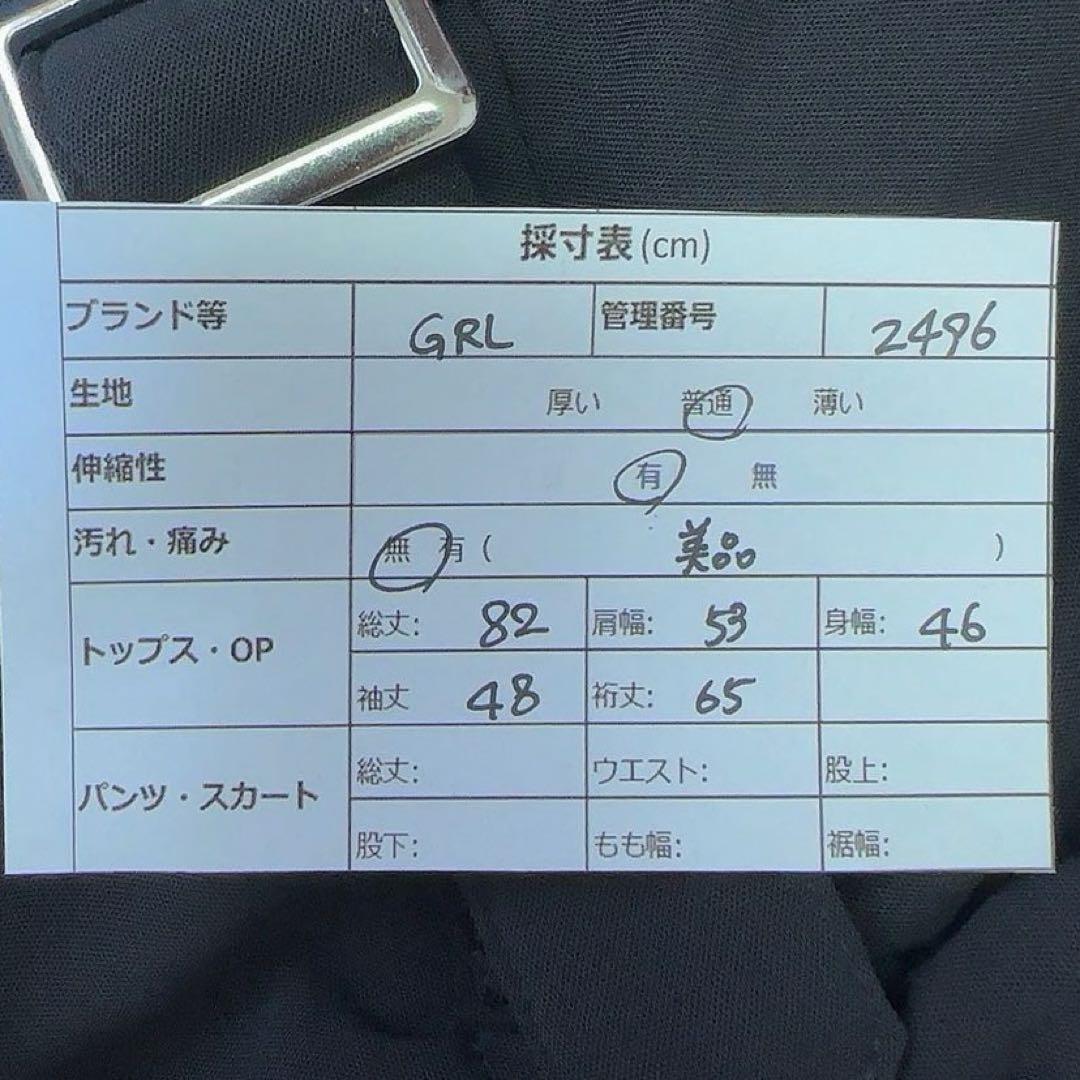 採寸表(cm)
ブランド等 GRL 管理番号 2496
生地 厚い 普通 薄い
伸縮性 有 無
汚れ・痛み 無 有 ( 美品 )
トップス・OP 総丈: 82 肩幅: 53 身幅: 46
袖丈 48 裄丈: 65
パンツ・スカート 総丈: ウエスト: 股上:
股下: もも幅: 裾幅: